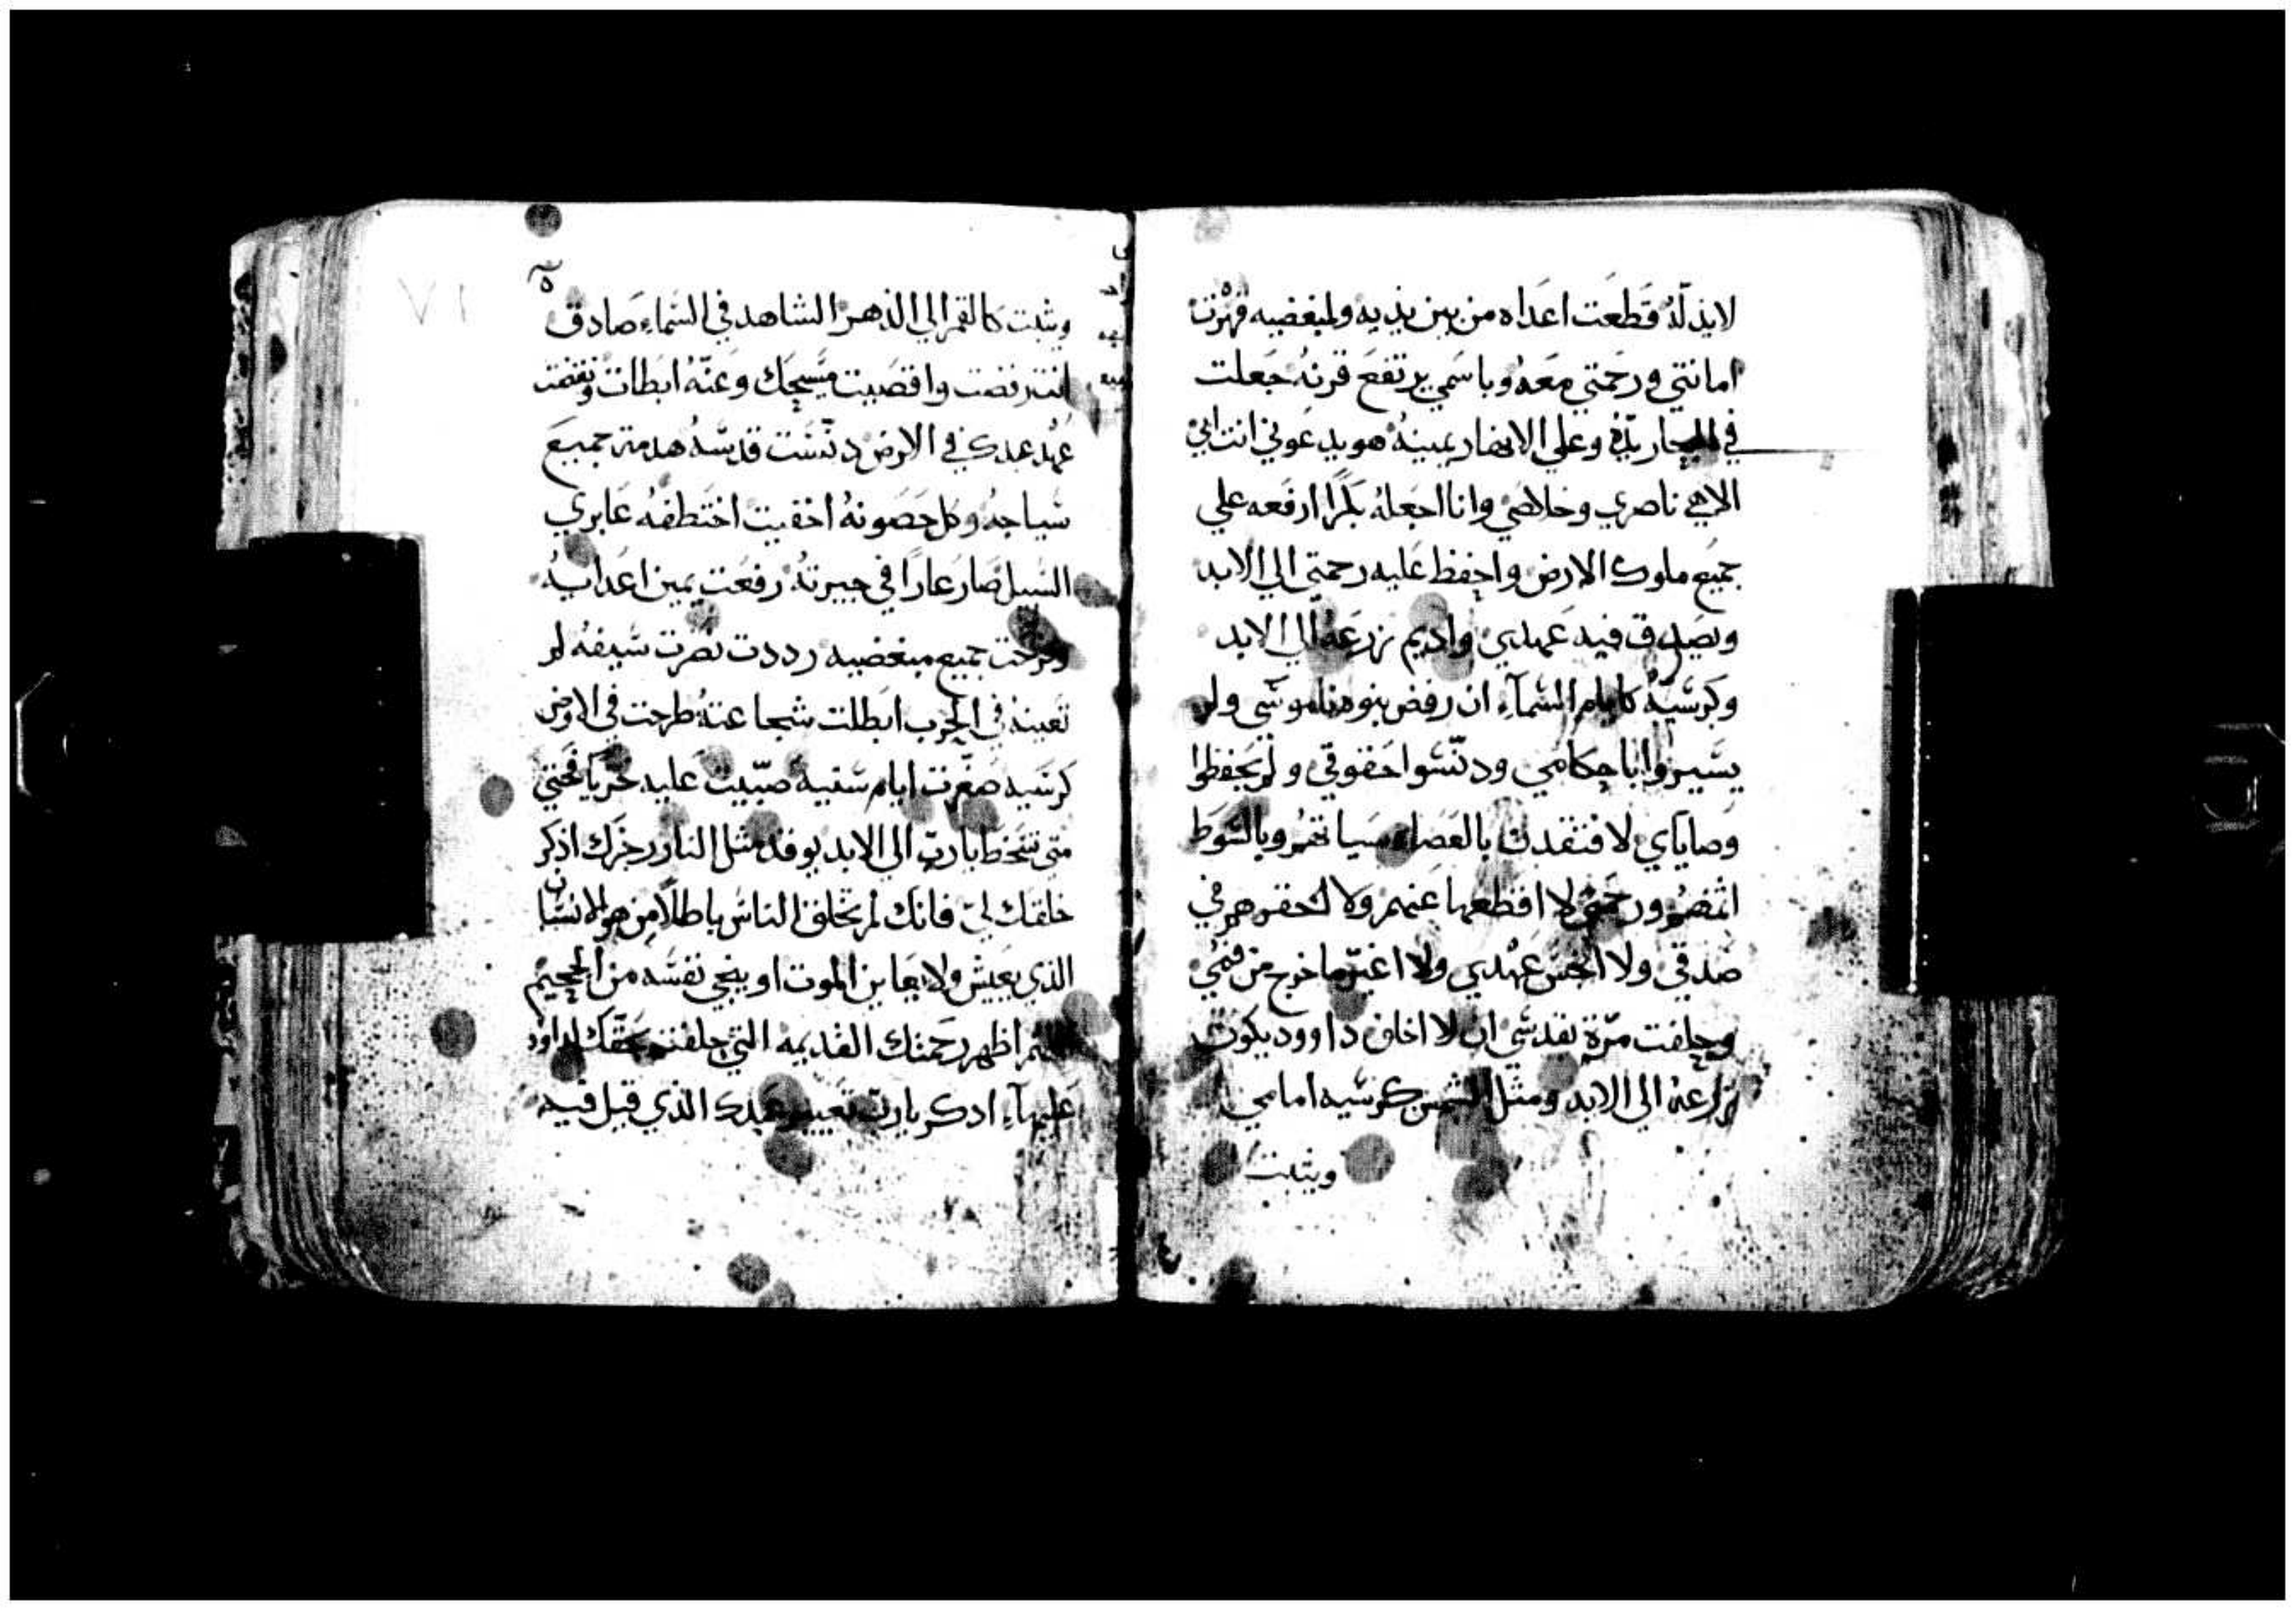 لايذلّهُ قَطعَت اعَداه من بين يديه ولمبغضيه قهَرْت
امانتي ورحَمتي معَهُ وباسَمي يرتفعَ قرنهُ جَعلت
في البحار يدّهُ وعلي الانهار يمينهُ هو يدعَوني انت ابي
الاهي ناصري وخلاصَي وانا اجعَلهُ بكرًا ارفعَه علي
جميَع ملوك الارض واحفظ عَليه رحمتي الي الابد
ونصَدق فيه عَهدي واديم زرعَهُ الي الابد
وكرسَيهُ كايام السَماَء ان رفض بنوه ناموسَي ولم
يسَيروا باحكامي ودنّسَوا حَقوقي ولم يحَفظوا
وصاياي لافتقدت بالعَصاه سياتهَم وبالسَوط
اثمهَم ورحمَتي لا اقطعَها عنهم ولا احقرهم في
صَدقي ولا انجسَ عهْدي ولا اغيّر ما خرج من فمي
وحلفت مرّة بقدسَي ان لا اخلف داوود يكون
زارعهُ الي الابد ومثل الشمس كرسَيه امامي
ويثبت
ويثبت كالقمر الي الدهر الشاهد في السَماء صَادق
انت رفضت واقصَيت مسَيحَك وعَنّهُ ابطات ونقضت
عهْد عبدك في الارض دنّسَت قدسَهُ هدمت جميعَ
سَياجهُ وكل حَصَونهُ اخفيت اختَطفهُ عَابري
السَبيل صَار عَارًا في جيرتهُ رفعَت يمين اعَدايهُ
وفرحت جميع مبغضيه رددت نصَرت سَيفهُ لم
تعَينهُ في الحَرب ابَطلت شجاعتهُ طرحت في الارض
كرسَيه صَغّرت ايام سَنيه صَبّيت عَليه خَزيًا فحَتي
متي تسَخط يارب الي الابد يوقد مثل النار رجزَك اذكَر
خلقك لي فانك لم تخَلق الناسَ باطلاً من هو الانسَان
الذي يعَيش ولا يعَاين الموت او ينجي نفسَه من الجحيم
اظهر رحَمتك القديمه التي حلفت بحَقّك لداود
عَليهاَء ادكر يارب تعَيير عَبدك الذي قبل فيه
٧١